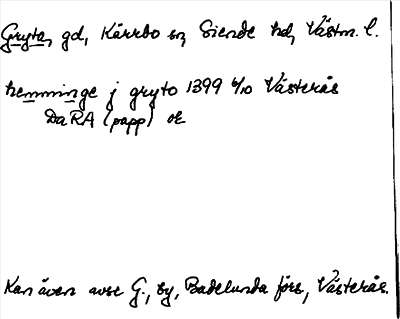 Gryta, gd, Kärrbo sn, Siende hd, Västm. l.
hemminge j gryto 1399 6/10 Västerås
DaRA (papp) ok
Kan även avse G., by, Badelunda förs, Västerås.